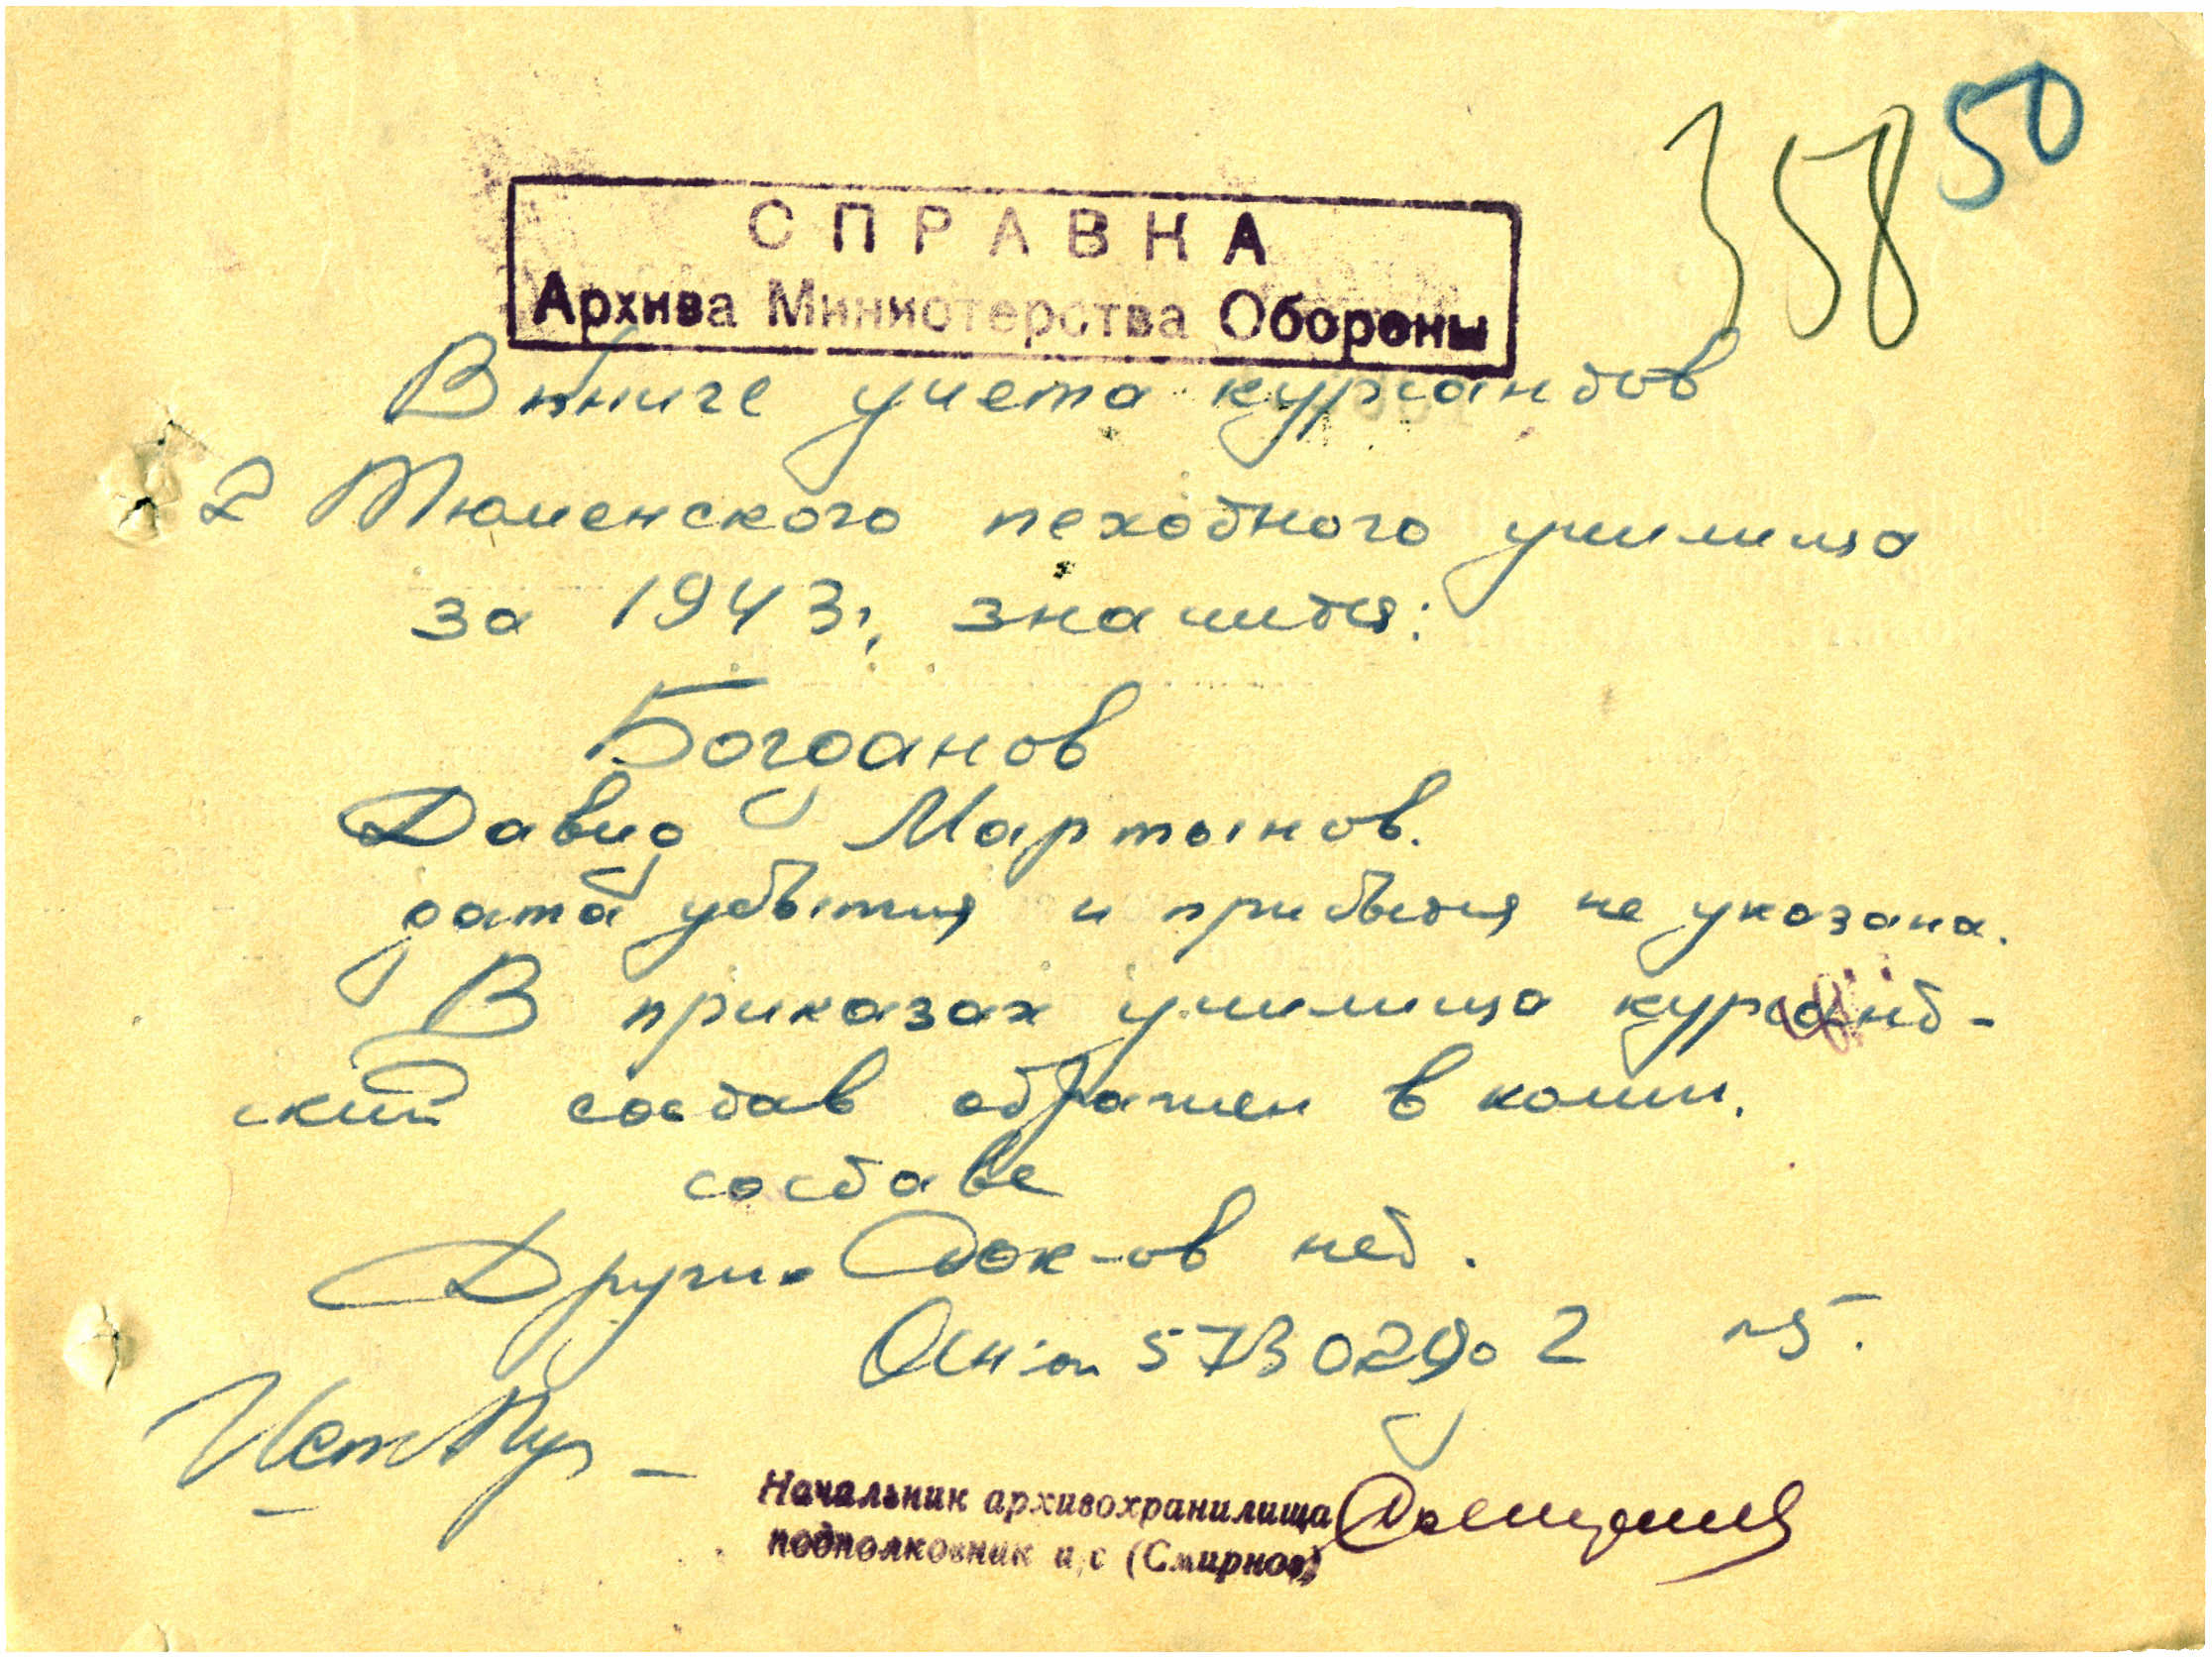 358 50
СПРАВКА
Архива Министерства Обороны
В книге учета курсантов
2 Тюменского пехотного училища
за 1943г. значится:
Богданов
Давид Мартынов.
дата убытия и прибытия не указана.
В приказах училища курсант-
ский состав отражен в колич.
составе
Других док-ов нет.
573029
Начальник архивохранилища
подполковник и/с (Смирнов)